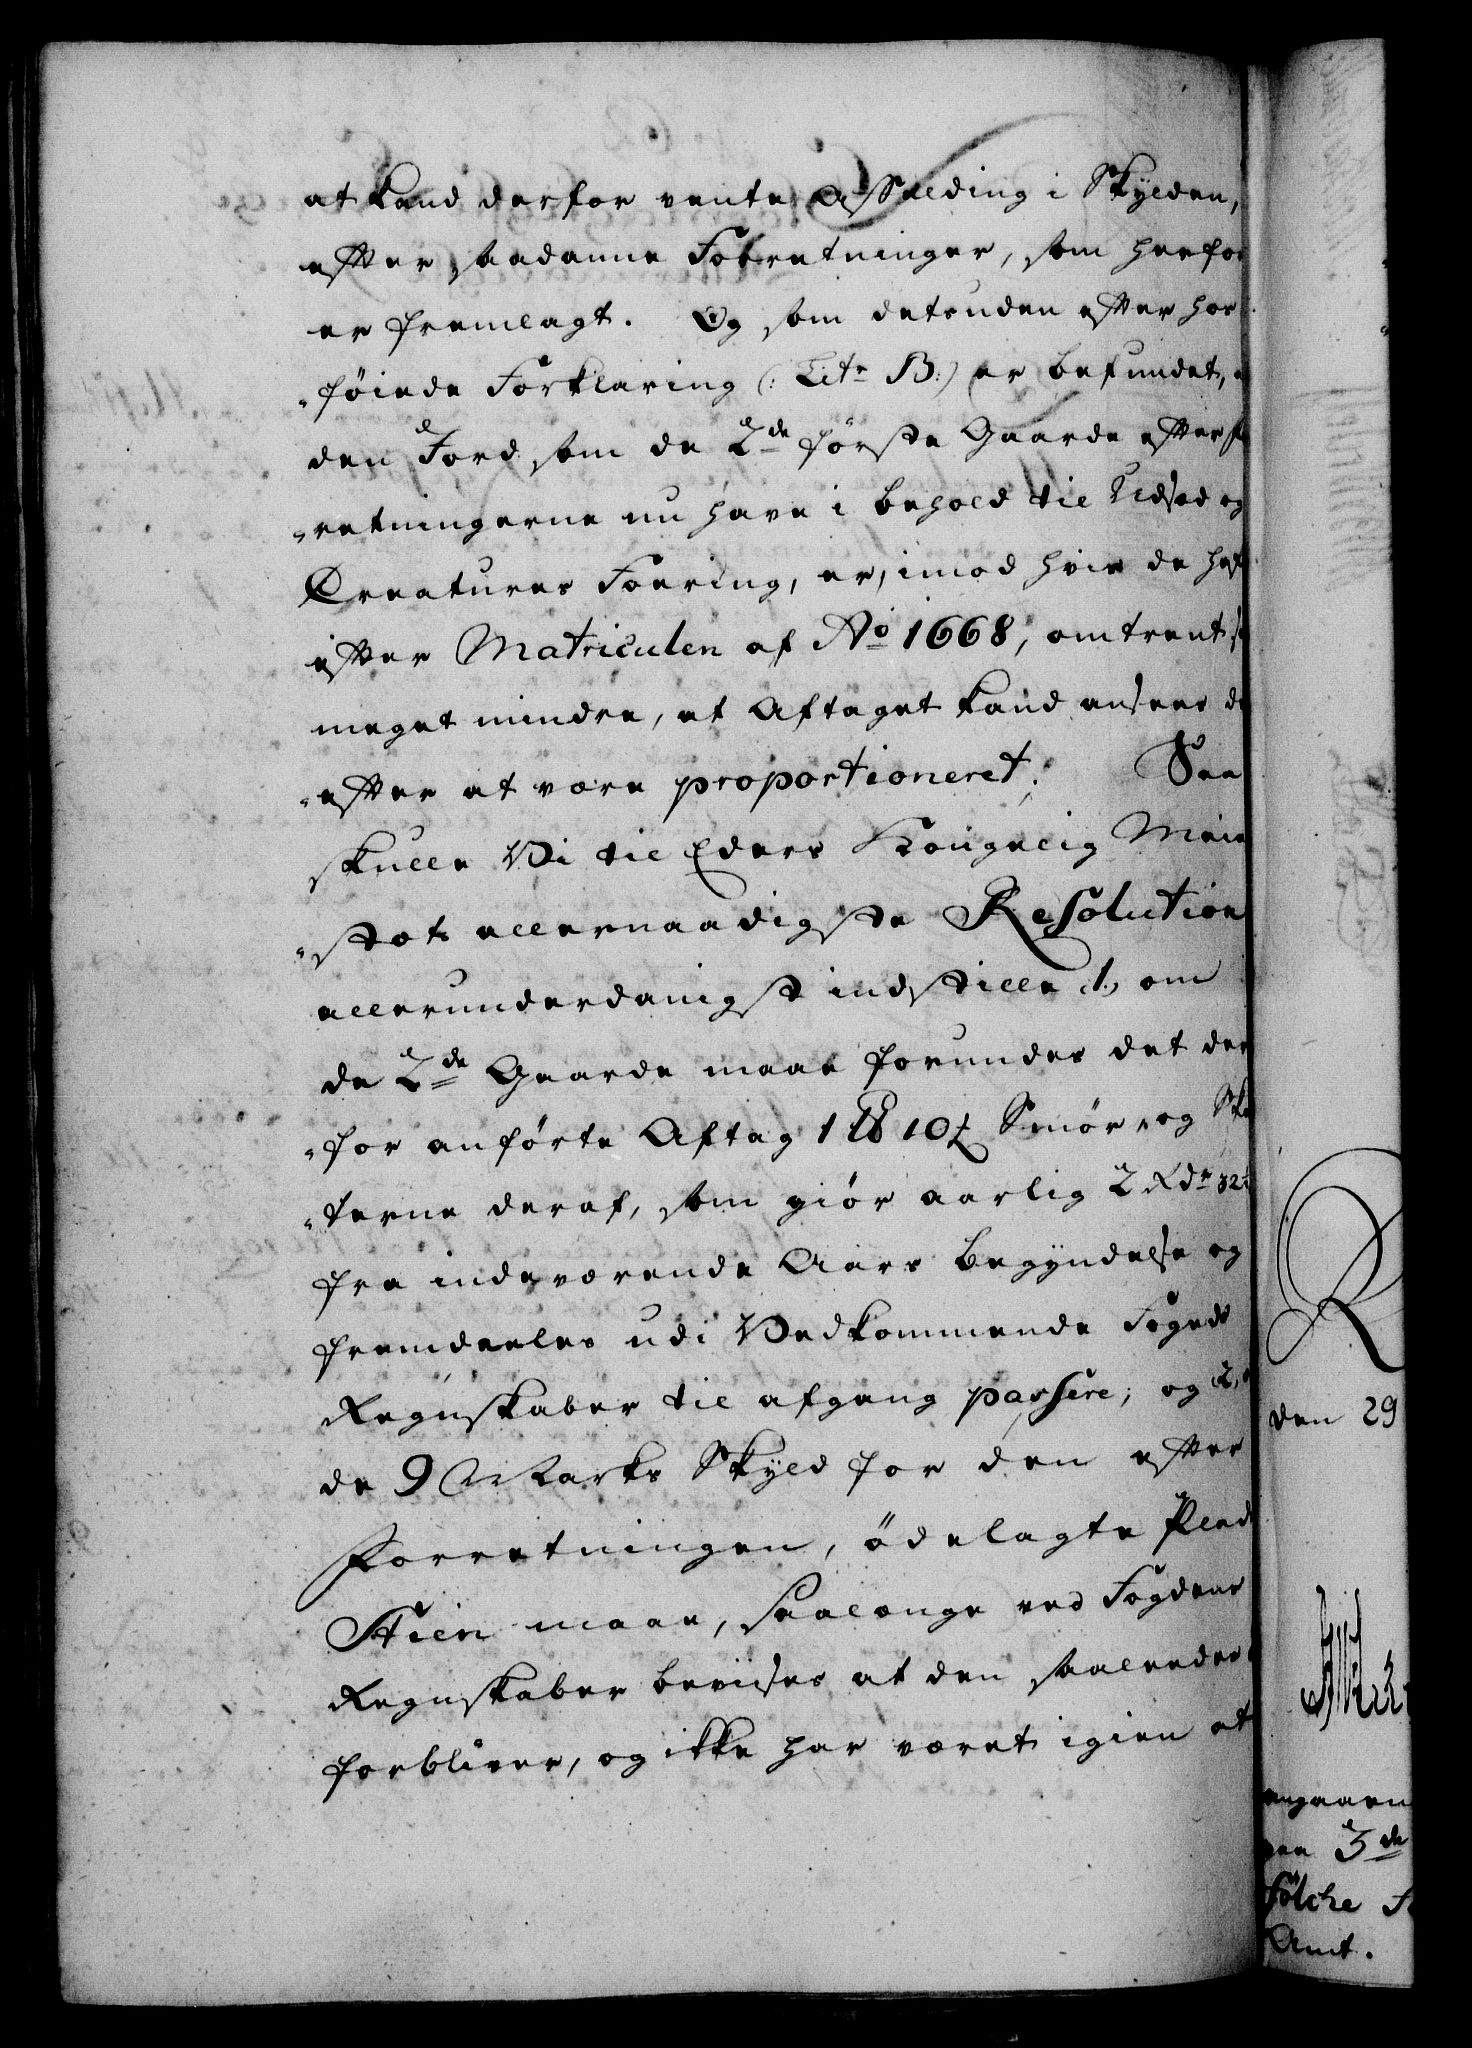 at kand derfor vente Affælding i Skylden,
efter saadanne Forretninger, som herfor
er fremlagt. Og som desuden efter hos
"føiede Forklaring (: Litr B:) er befundet,
den Jord som de 2de første Gaarde efter
"retningerne nu have i behold til Udsæd og
Creaturers Foering, er, imod hvis de
efter Matriculen af Ao 1668, omtrent
meget mindre, at Aftaget kand ansees
"efter at være proportioneret; Saa
skulle Vi til Eders Kongelig Maie
"stæts allernaadigste Resolution
allerunderdanigst indstille, 1, om
de 2de Gaarde maae forundes det der
"for anførte Aftag 1 10 Smør, og
"terne deraf, som giør aarlig 2 Rdr
fra indeværende Aars Begyndelse og
fremdeeles udi Vedkommende Fogeds
Regnskaber til afgang passere; og 2,
de 9 Marks Skyld for den efter
Forretningen, ødelagte
Stien maae, saalænge ved Fogdens
Regnskaber bevises at den saaledes
forbliver, og ikke har været igien at
den 29
angaaen
3de
Amt.